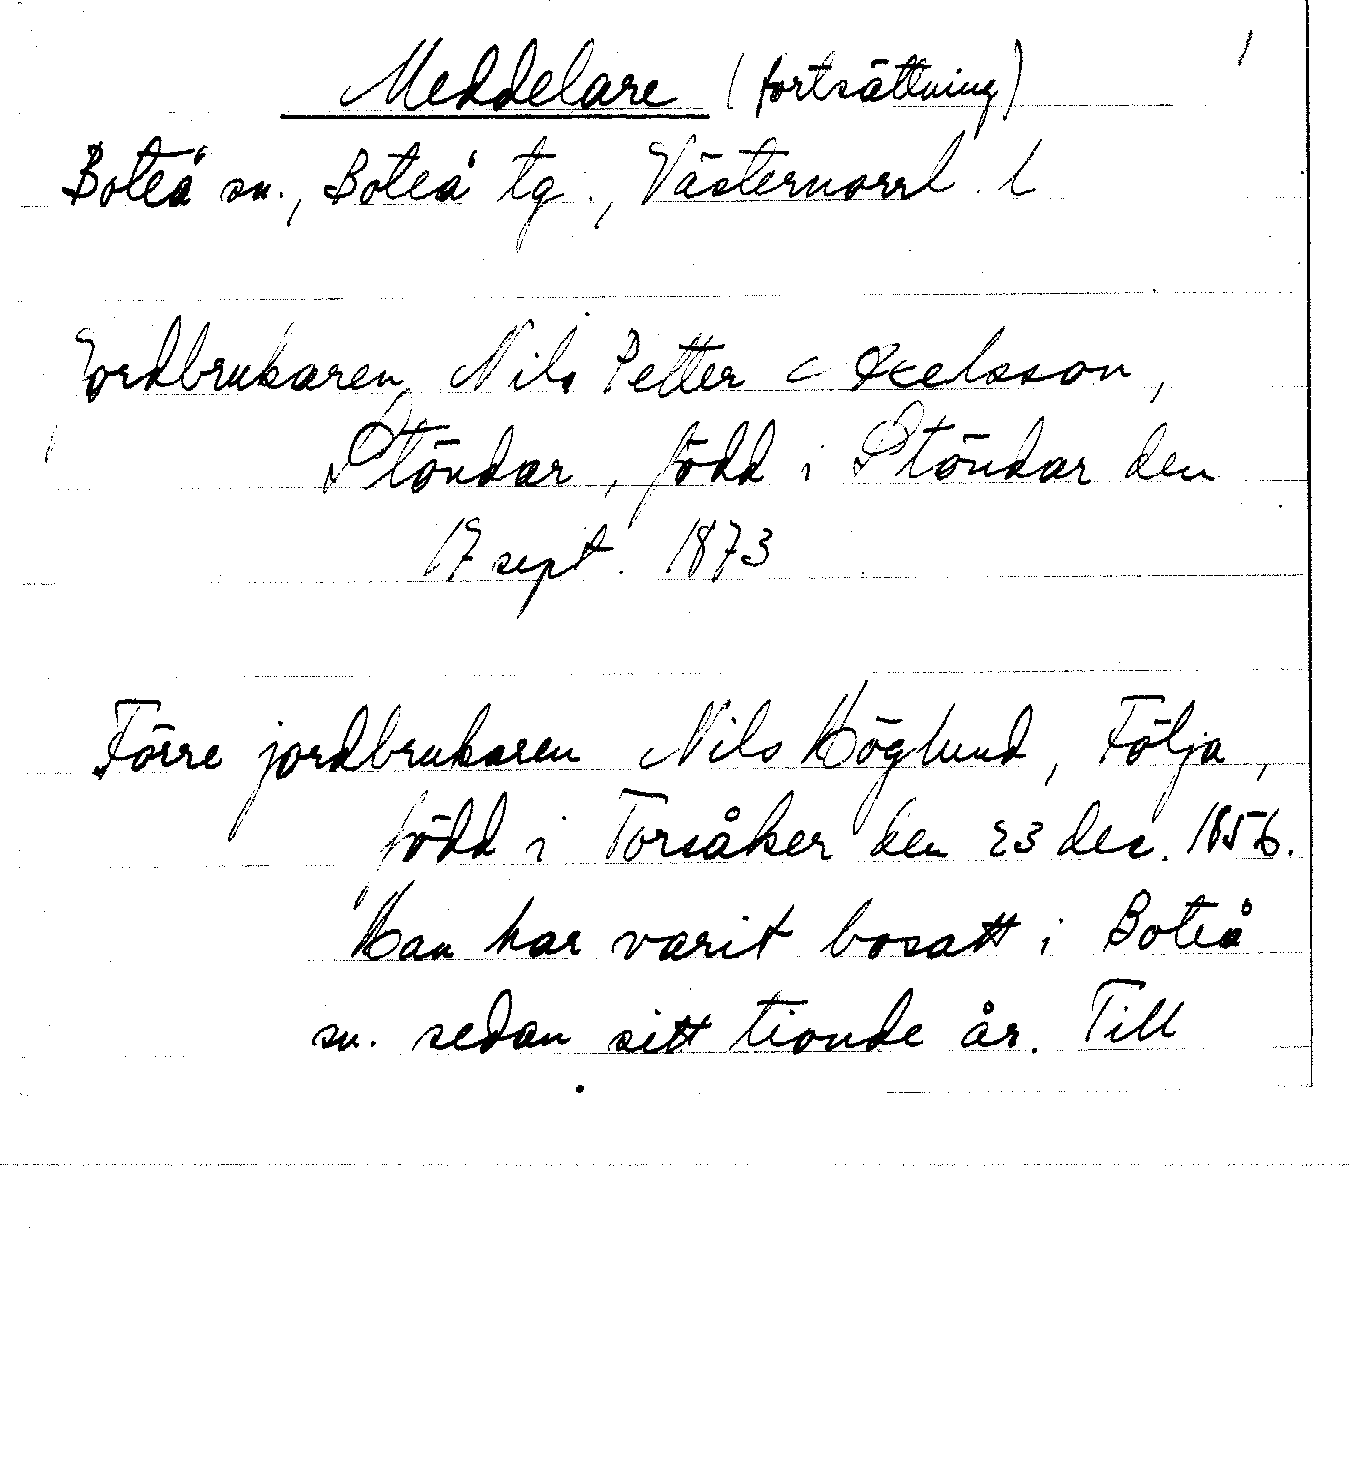 Meddelare (fortsättning) 1
Boteå sn., Boteå tg., Västernorrl. l
Jordbrukaren Nils Petter Axelsson,
Stöndar, född i Stöndar den
17 sept. 1873
Förre jordbrukaren Nils Höglund, Följa,
född i Torsåker den 23 dec. 1856.
Han har varit bosatt i Boteå
sn. sedan sitt tionde år. Till